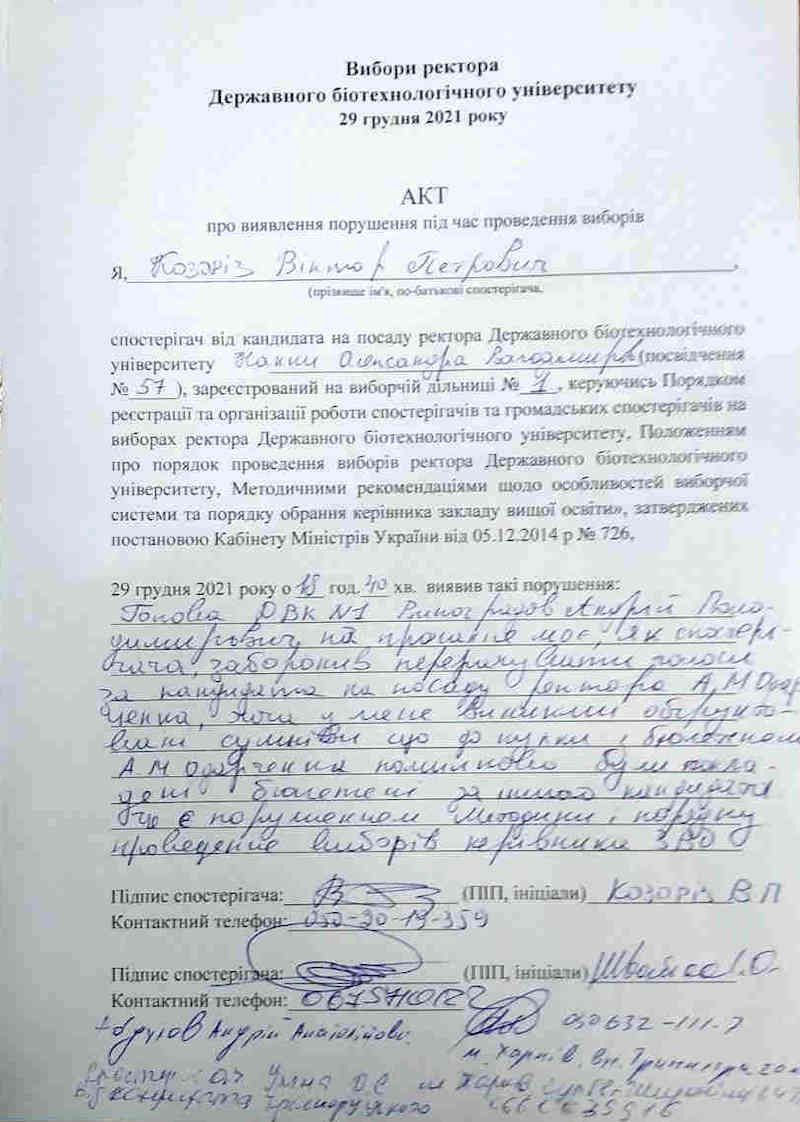 Вибори ректора
Державного біотехнологічного університету
29 грудня 2021 року
АКТ
про виявлення порушення під час проведення виборів
Я, Козоріз Віктор Петрович,
(прізвище ім'я, по-батькові спостерігача,
спостерігач від кандидата на посаду ректора Державного біотехнологічного
університету Олександра (посвідчення
№ 57 ), зареєстрований на виборчій дільниці № 1 , керуючись Порядком
реєстрації та організації роботи спостерігачів та громадських спостерігачів на
виборах ректора Державного біотехнологічного університету, Положенням
про порядок проведення виборів ректора Державного біотехнологічного
університету, Методичними рекомендаціями щодо особливостей виборчої
системи та порядку обрання керівника закладу вищої освіти», затверджених
постановою Кабінету Міністрів України від 05.12.2014 р № 726,
29 грудня 2021 року о год. 40 хв. виявив такі порушення:
Голова ДВК №1 Виноградов Андрій Воло-
димирович, на прохання моє, як спостері-
гача, заборонив перерахувати голоси
за кандидата на посаду ректора А.М Одар
ченка, хоча у мене виникли обґрунто-
вані сумніви що до пачки з бюлетнями
А.М Одарченка помилково були покла-
дені бюлетені за іншого кандидата
Це є порушенням Методики і порядку
проведення виборів керівника ЗВО
Підпис спостерігача: (ПІП, ініціали) Козоріз В П
Контактний телефон: 050-30-19-359
Підпис спостерігача: (ПІП, ініціали) І.О.
Контактний телефон:
Андрій 050 632-111-7
м. Харків, вул.
м Харків